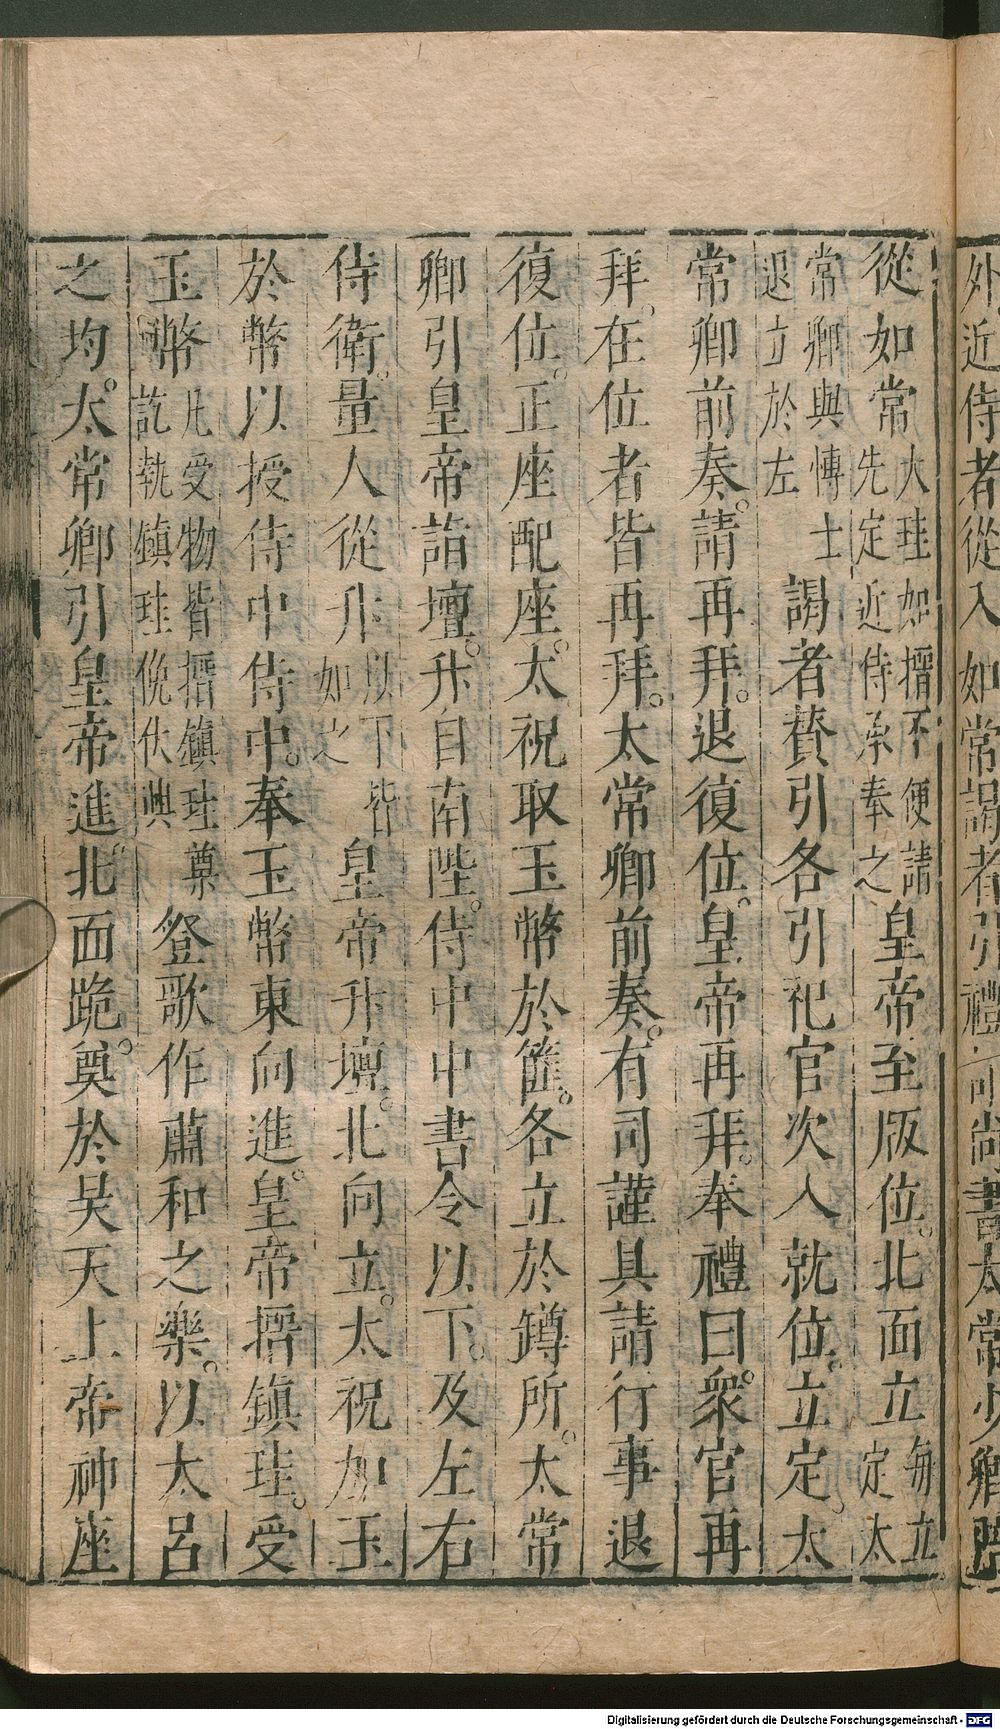 外近侍者從入 如常謁者引禮部尚書太常少卿陪
從如常大珪如搢不便請先定近侍承奉之皇帝至版位。北面立每立定太
常卿與博士退立於左謁者贊引各引祀官次入就位。立定。太
常卿前奏。請再拜。退復位。皇帝再拜。奉禮曰。衆官再
拜。在位者皆再拜。太常卿前奏。有司謹具請行事退
復位。正座配座。太祝取玉幣於篚。各立於罇所。太常
卿引皇帝詣壇。升自南陛。侍中中書令以下。及左右
侍衛。量人從升以下皆如之皇帝升壇。北向立。太祝加玉
於幣以授侍中侍中。奉玉幣東向進。皇帝搢鎮珪。受
玉幣凡受物皆搢鎮珪奠訖執鎮珪俛伏興登歌作肅和之樂。以太呂
之均。太常卿引皇帝進北面跪。奠於昊天上帝神座
Digitalisierung gefördert durch die Deutsche Forschungsgemeinschaft - DFG